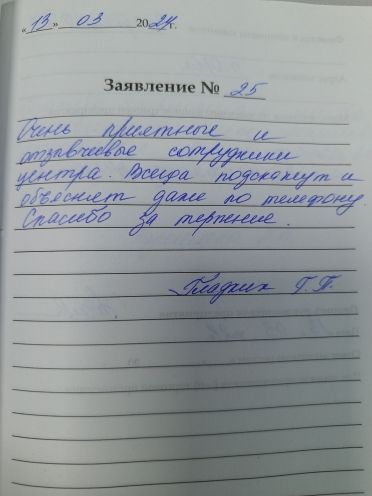 «13» 03 2024 г.
Заявление № 25
Очень приятные и
отзывчевые сотрудники
центра. Всегда подскажут и
объяснят даже по телефону.
Спасибо за терпение.
Гладких Г.П.